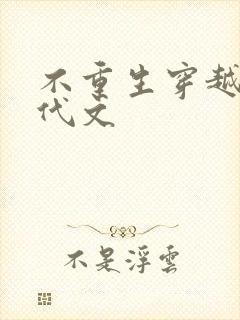 不重生穿越
代文
不是浮雲